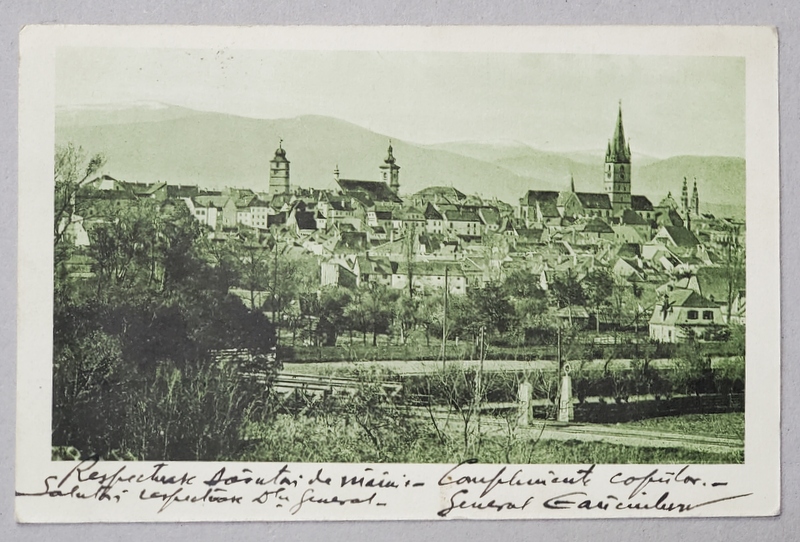 Respectuase sărutări de mâini. - Complimente copiilor. -
Salutări respectuase Dlui General. - General